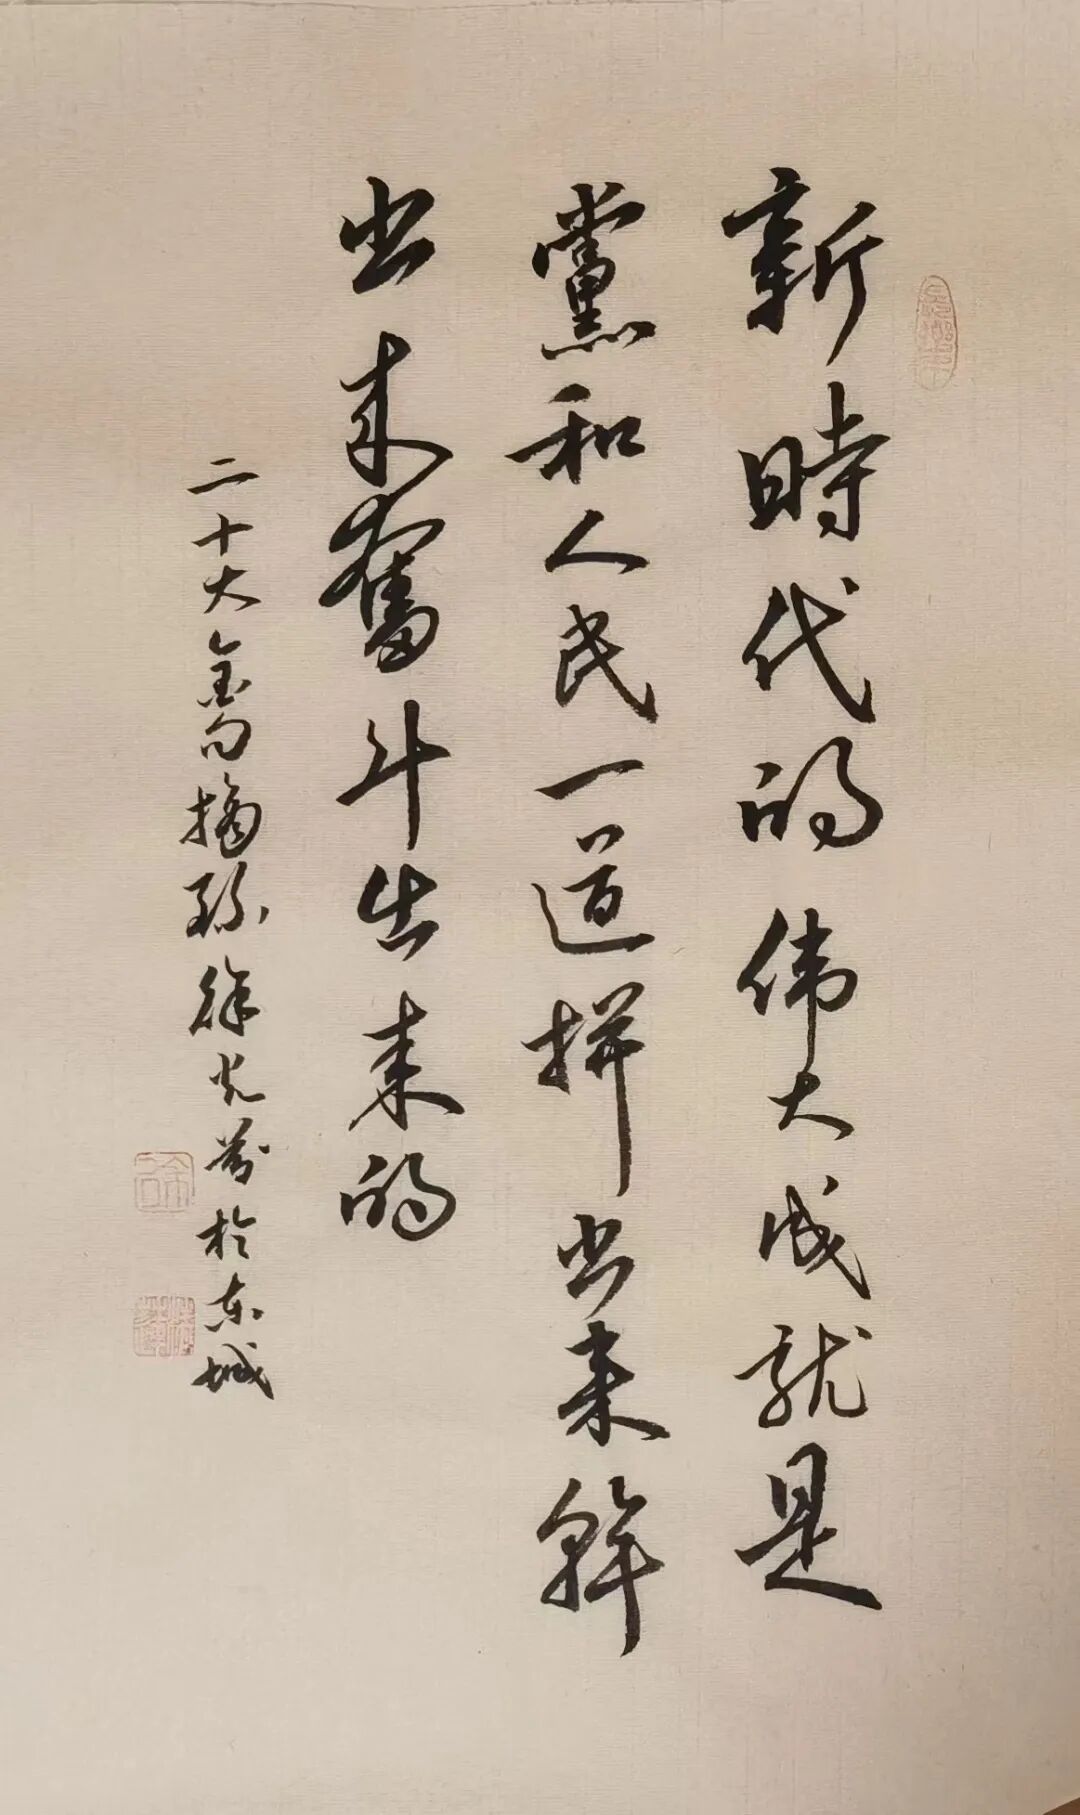 新時代的伟大成就是
黨和人民一道拼出来幹
出来奮斗出来的
二十大金句摘錄徐光芬於东城
徐